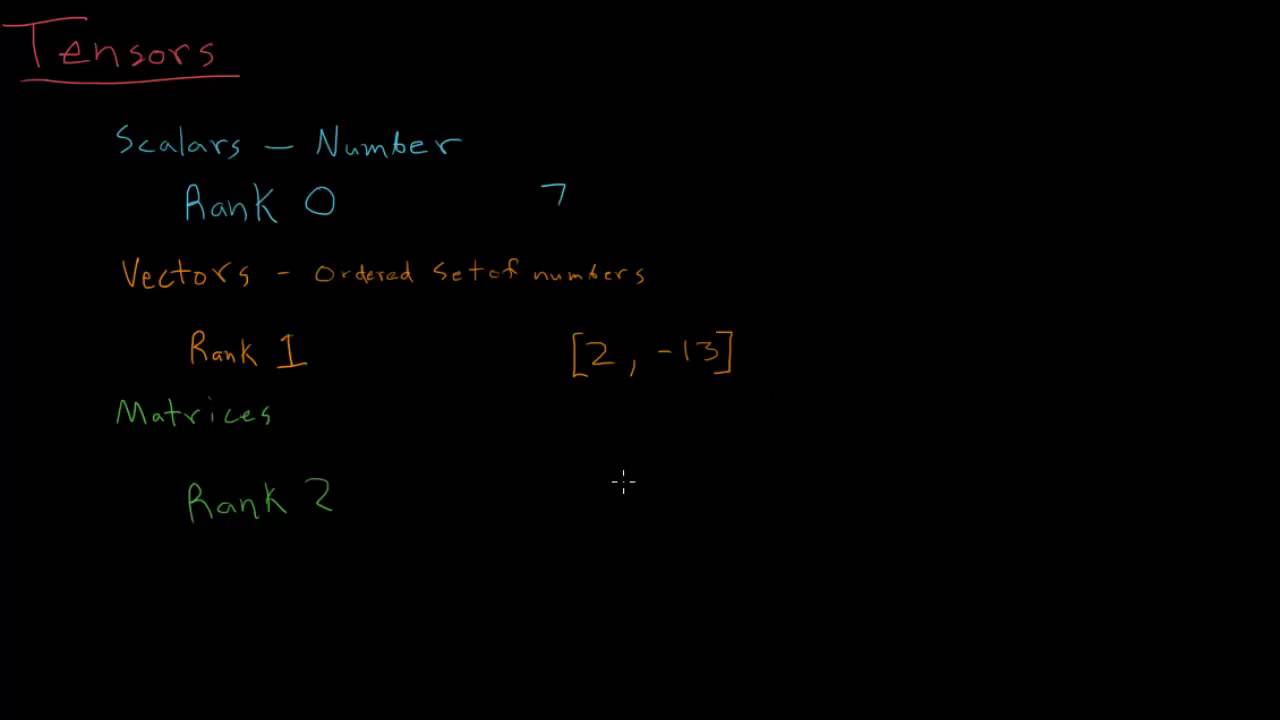 Tensors
Scalars - Number
Rank 0 7
Vectors - Ordered set of numbers
Rank 1 [2, -13]
Matrices
Rank 2